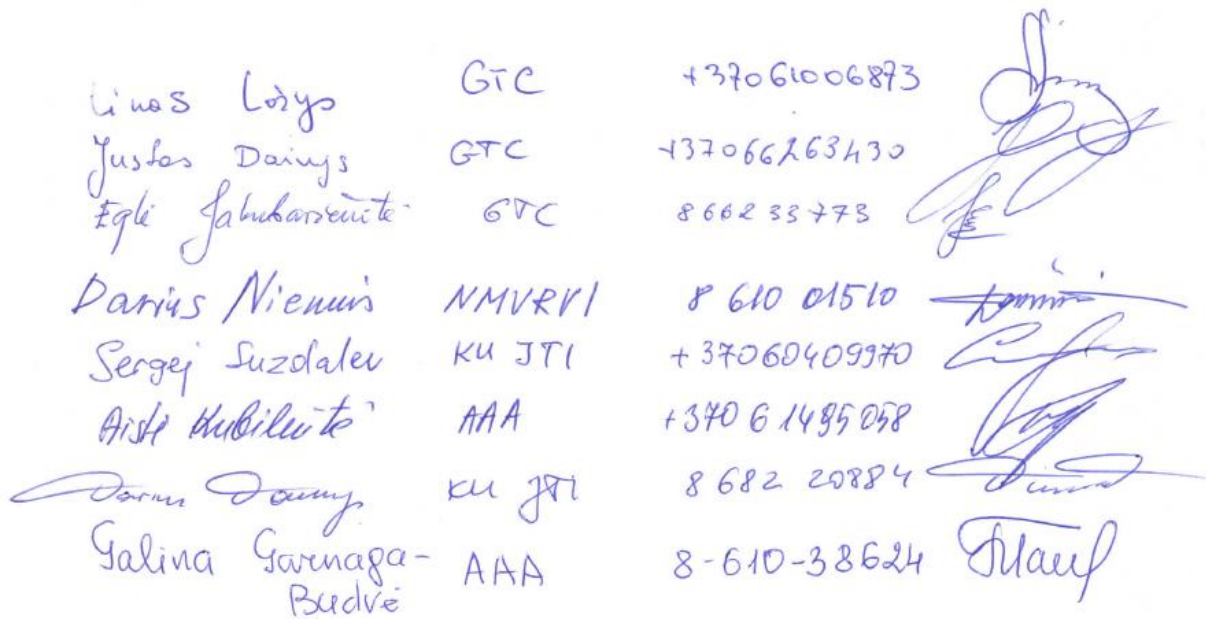 Linas Ložys GTC +37061006873
Justas Dainys GTC +37066263430
Eglė Jakubavičiūtė GTC 866233773
Darius Niemis NMVRVI 8 610 01510
Sergej Suzdalev KU JTI +37060409970
Aistė Kubiliūtė AAA +370 61495058
Darius Daunys KU JTI 8 682 20884
Galina Garnaga- AAA 8-610-38624
Budrė